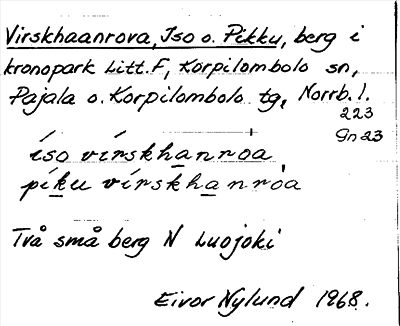 Virskhaanrova, Iso o. Pikku, berg i
kronopark Litt. F, Korpilombolo sn,
Pajala o. Korpilombolo tg, Norrb. l.
223
Gn 23
íso vírskhanroa
píku vírskhanroa
Två små berg N Luojoki
Eivor Nylund 1968.